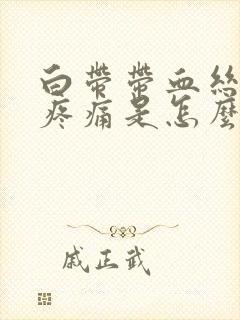 白带带血丝
疼痛是怎麼
戚正武